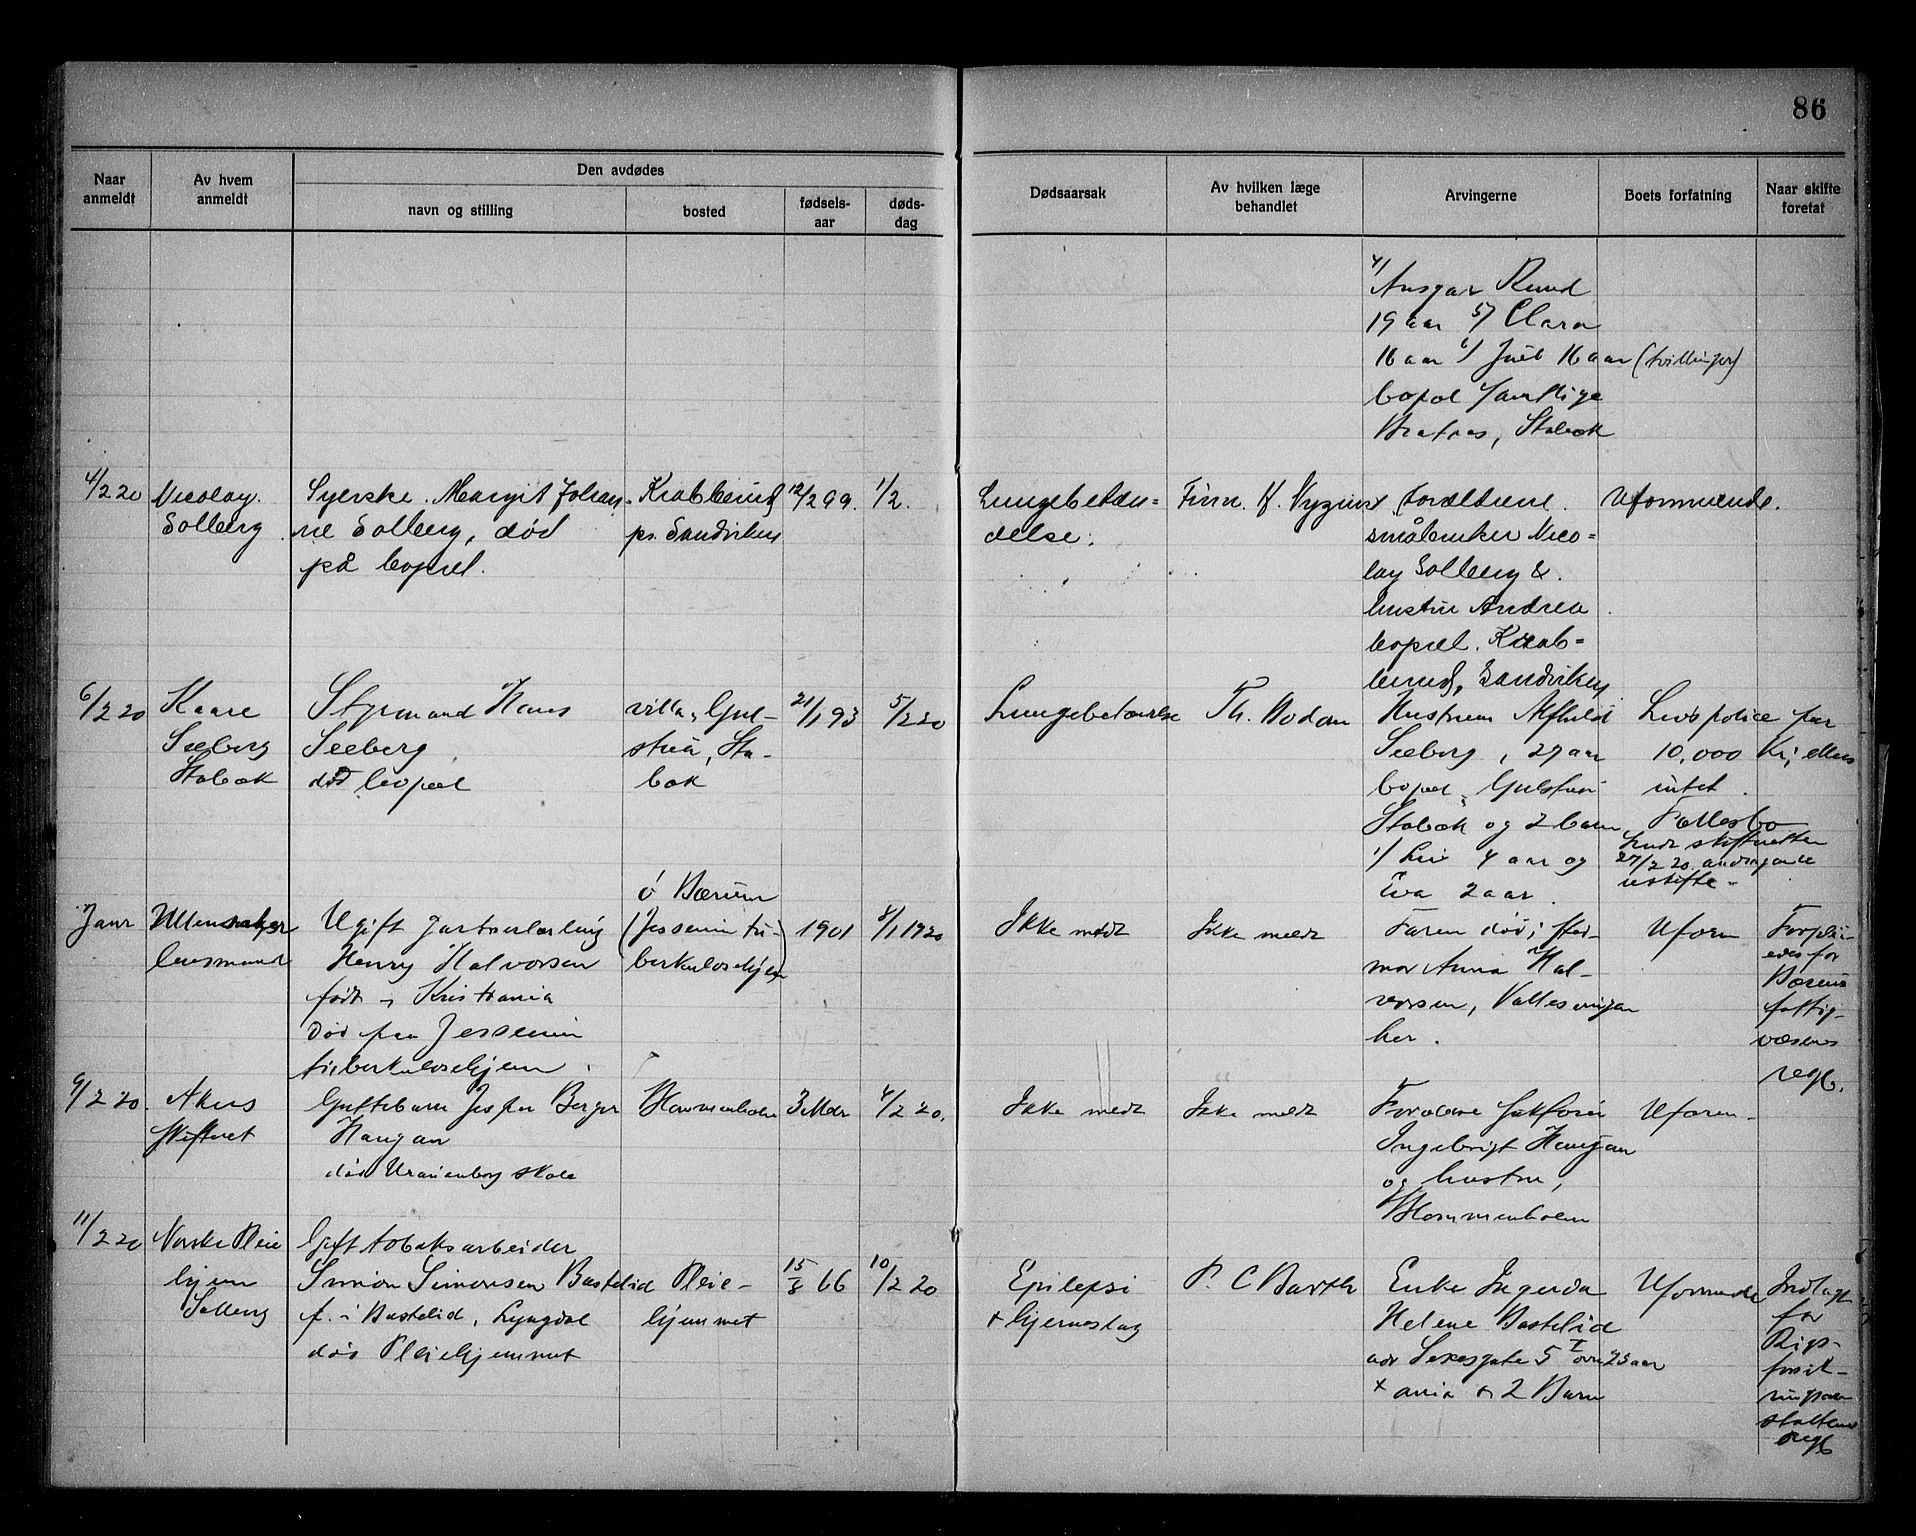 86
Naar anmeldt
Av hvem anmeldt
Den avdødes
navn og stilling
bosted
fødsels-aar
døds-dag
Dødsaarsak
Av hvilken læge behandlet
Arvingerne
Boets forfatning
Naar skifte foretat
4/ Ansgar Ruud
19 aar 5/ Clara
16 aar 6/ Juel 16 aar (tvillinger)
bopæl samtlige
Stabæk
4/2 20
Nicolay
Solberg
Syerske Margit Johan-
ne Solberg, død
på bopæl.
Krabberud
pr. Sandviken
12/2 99.
1/2.
Lungebetæn-
delse.
Finn K.
Forældrene
småbruker Nico-
lay Solberg &
hustru Andrea
bopæl. Krab-
berud, Sandviken
Uformuende.
6/2 20
Kaare
Seeberg
Stabæk
Styrmand Hans
Seeberg
død bopæl
villa Gul-
stua, Sta-
bæk
21/1 93
5/2 20
Lungebetændelse
Th. Bodom
Hustruen Alfhild
Seeberg, 27 aar
bopæl Gulstua
Stabæk og 2 barn
1/ Liv 4 aar og
Eva 2 aar.
Livspolice paa
10,000 Kr, ellers
intet.
Fællesbo
Sendt skifteretten
27/2 20 andragende
uskifte.
Janr
Ullensaker
lensmand
Ugift
Henry Halvorsen
født i Kristiania
Død paa Jessenin
tuberkulosehjem.
Ø Bærum
(Jessenin tu-
berkulosehjem)
1901
8/1 1920
Ikke meldt
Ikke meldt
Faren død; sted-
mor Anna Hal-
vorsen,
her.
Uform
Forplei-
edes for
Bærums
fattig-
væsens
regb.
9/2 20.
Akers
skifteret
Guttebarn Jesper Berger
Haugan
død Uranienborg skole
Blommenholm
3 Mdr
4/2 20.
Ikke meldt
Ikke meldt
Forældrene
Ingebrigt Haugan
og hustru,
Blommenholm
Uform.
11/2 20
Norske Pleie
hjem
Solberg
Gift tobaksarbeider
Simon Simonsen Bastelid
f. i Bastelid, Lyngdal
død Pleiehjemmet
Pleie-
hjemmet
15/8 66
10/2 20
Epilepsi
+ hjerneslag
P. C. Barth
Enke Ingerda
Helene Bastelid
adr 5 I over 23 aar
X ania + 2 Barn
Uformuende
Indlagt
for
Rigs-
forsik-
ringsan-
staltens
regb